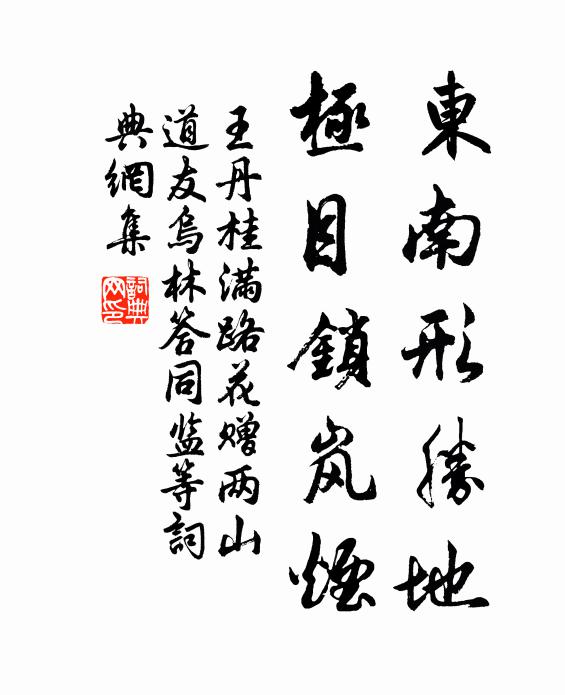 東南形勝地
極目鎖岚煙
王丹桂满路花赠两山
道友烏林答同监等詞
典網集
詞典网印